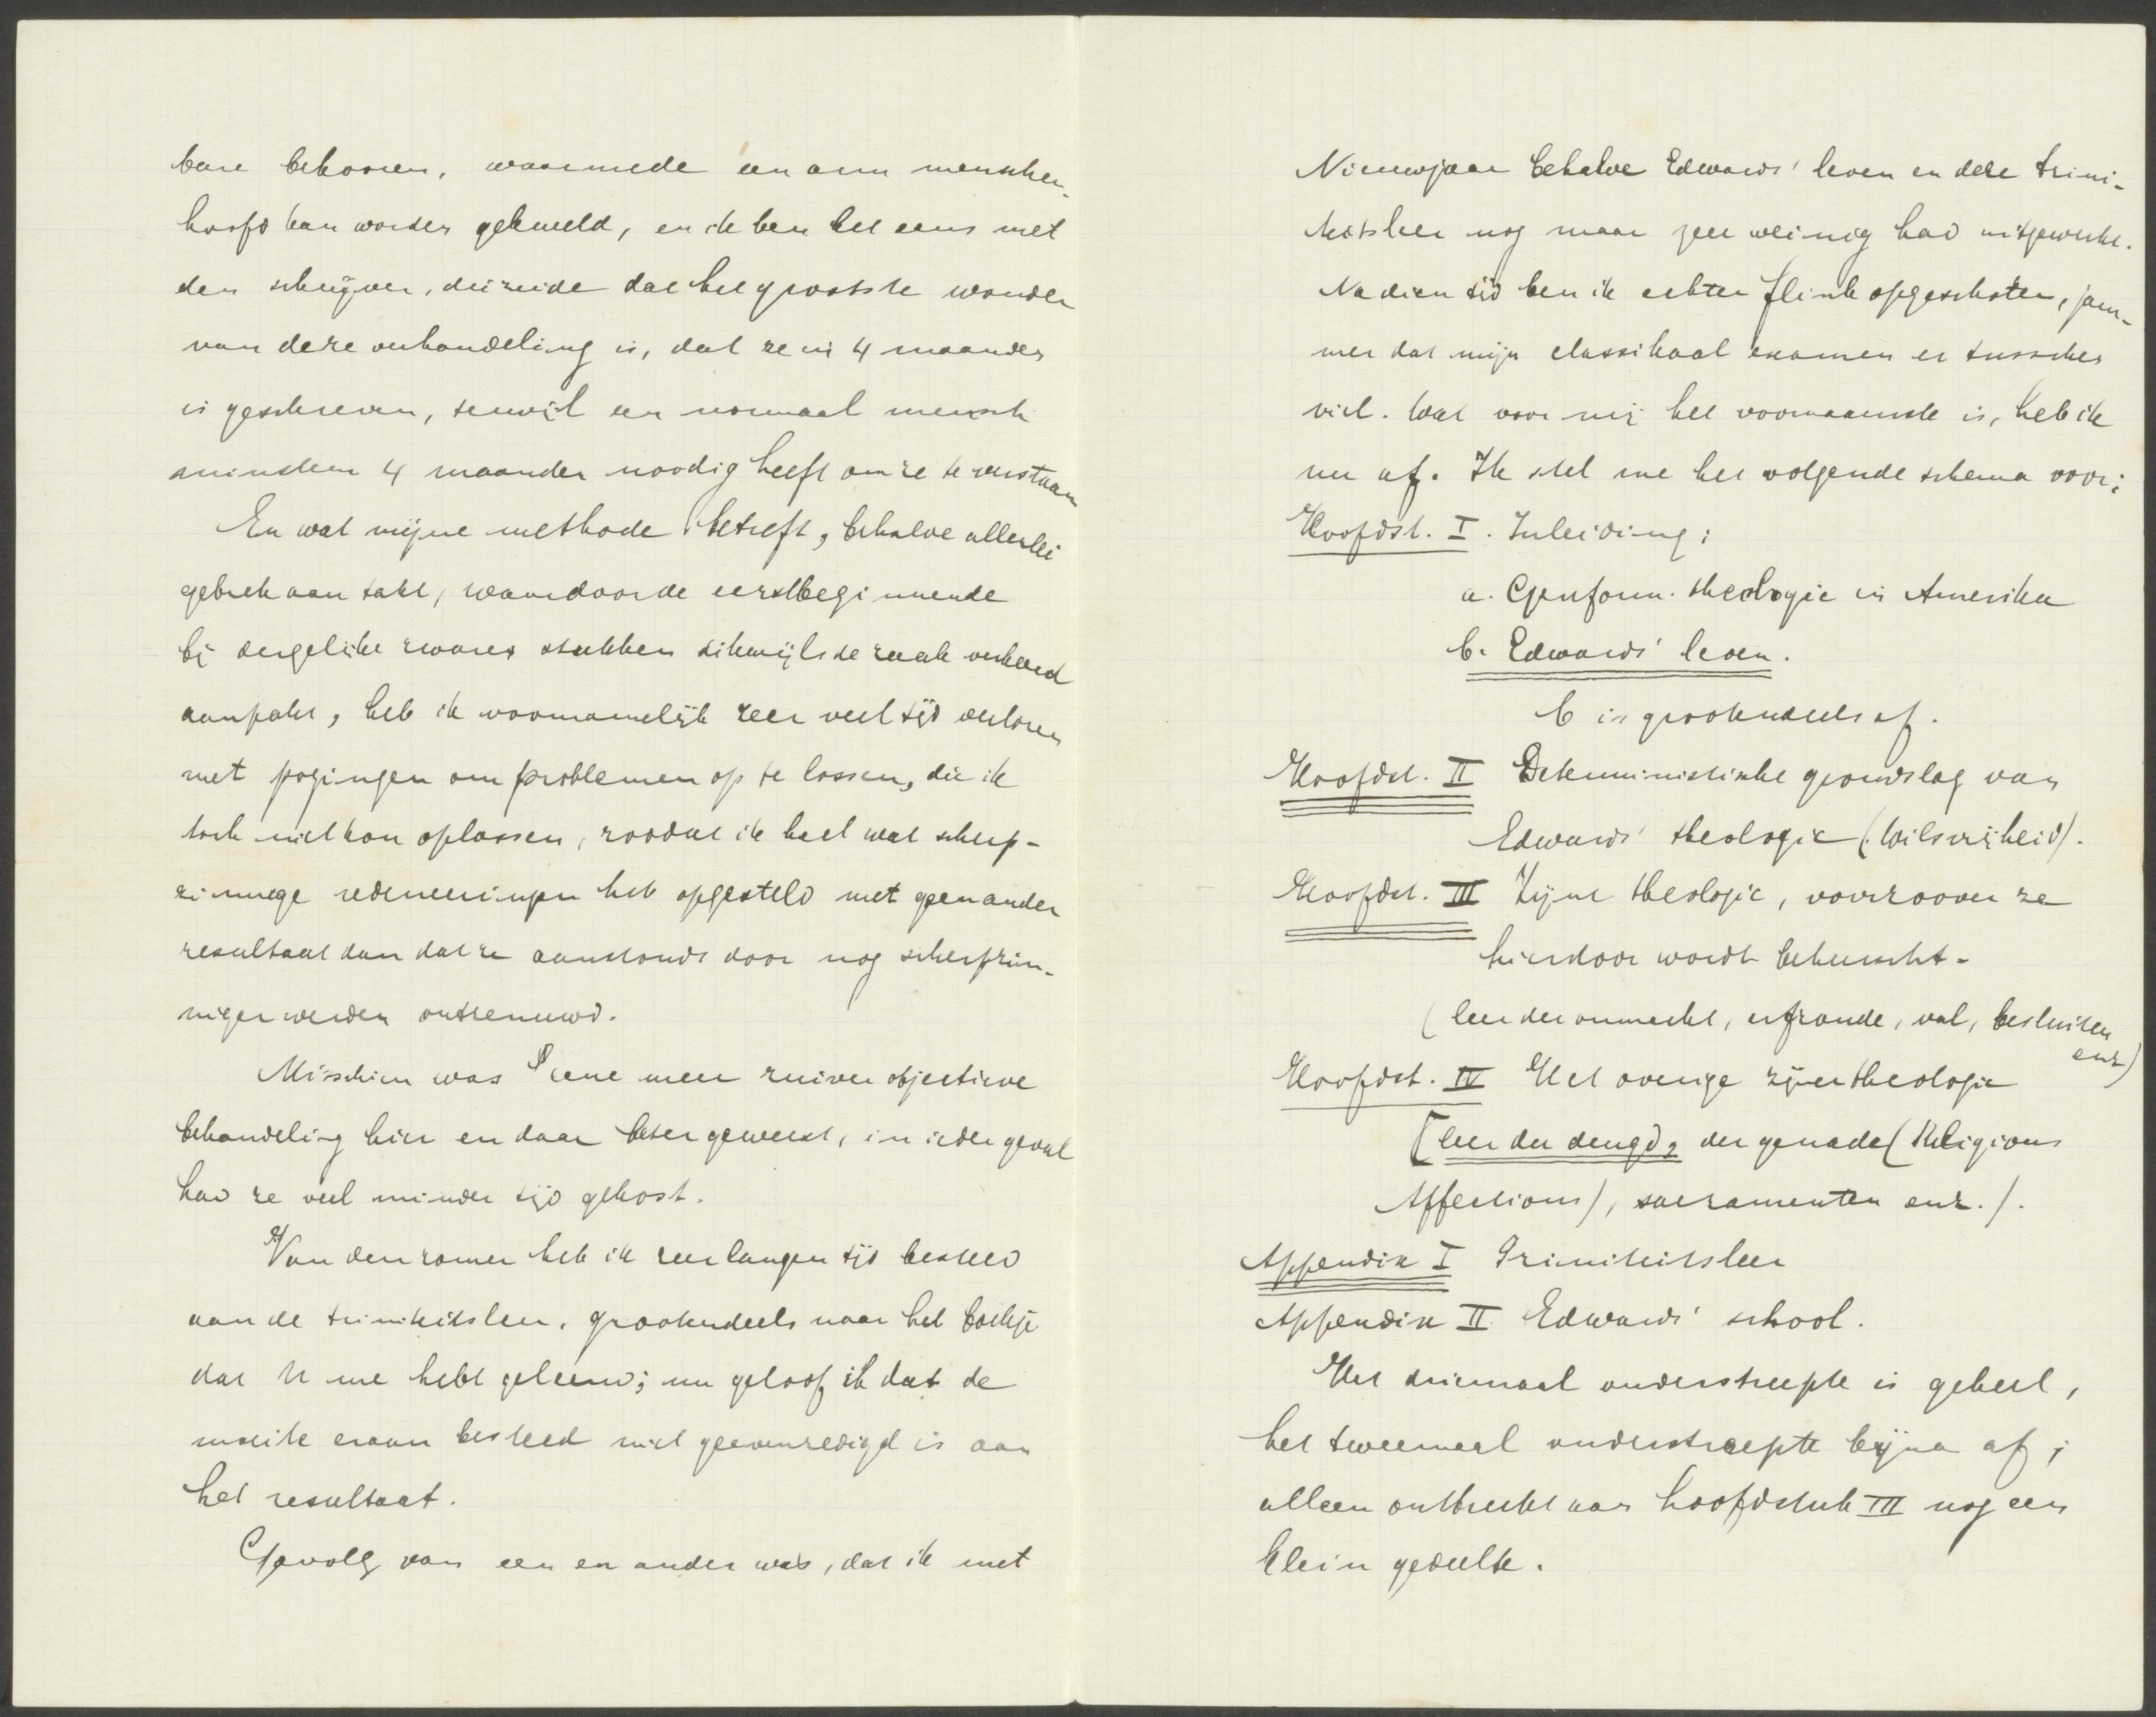 bare behooren, waarmede een arm menschen-
hoofd kan worden gekweld, en ik ben het eens met
den schrijver, die zeide dat het grootste wonder
van deze verhandeling is, dat ze in 4 maanden
is geschreven, terwijl een normaal mensch
minstens 4 maanden noodig heeft om ze te verstaan
En wat mijne methode betreft, behalve allerlei
gebrek aan takt, waardoor de eerstbeginnende
bij dergelijke zware stukken dikwijls de zaak verkeerd
aanpakt, heb ik voornamelijk zeer veel tijd verloren
met pogingen om problemen op te lossen, die ik
toch niet kon oplossen, zoodat ik heel wat scherp-
zinnige redeneeringen heb opgesteld met geen ander
resultaat dan dat ze aanstonds door nog scherpzin-
niger werden ontzenuwd.
Misschien was eene meer zuiver objectieve
behandeling hier en daar beter geweest, in ieder geval
had ze veel minder tijd gekost.
Van den zomer heb ik zeer langen tijd besteed
aan de triniteitsleer, grootendeels naar het boekje
dat U me hebt geleend; nu geloof ik dat de
moeite eraan besteed niet geevenredigd is aan
het resultaat.
Gevolg van een en ander was, dat ik met
Nieuwjaar behalve Edwards' leven en deze trini-
teitsleer nog maar zeer weinig had uitgewerkt.
Na dien tijd ben ik echter flink opgeschoten, jam-
mer dat mijn classikaal examen er tusschen
viel. Wat voor mij het voornaamste is, heb ik
nu af. Ik stel me het volgende schema voor:
Hoofdst. I. Inleiding:
a. Gereform. theologie in Amerika
b. Edwards' leven.
b is grootendeels af.
Hoofdst. II Deterministische grondslag van
Edwards' theologie (Wilsvrijheid).
Hoofdst. III Zijne theologie, voorzoover ze
hierdoor wordt beheerscht.
(leer der onmacht, erfzonde, val, besluiten
enz)
Hoofdst. IV Het overige zijner theologie
[leer der deugd, der genade (Religious
Affections), sacramenten enz.).
Appendix I Triniteitsleer
Appendix II Edwards' school.
Het driemaal onderstreepte is geheel,
het tweemaal onderstreepte bijna af;
alleen ontbreekt aan hoofdstuk III nog een
klein gedeelte.